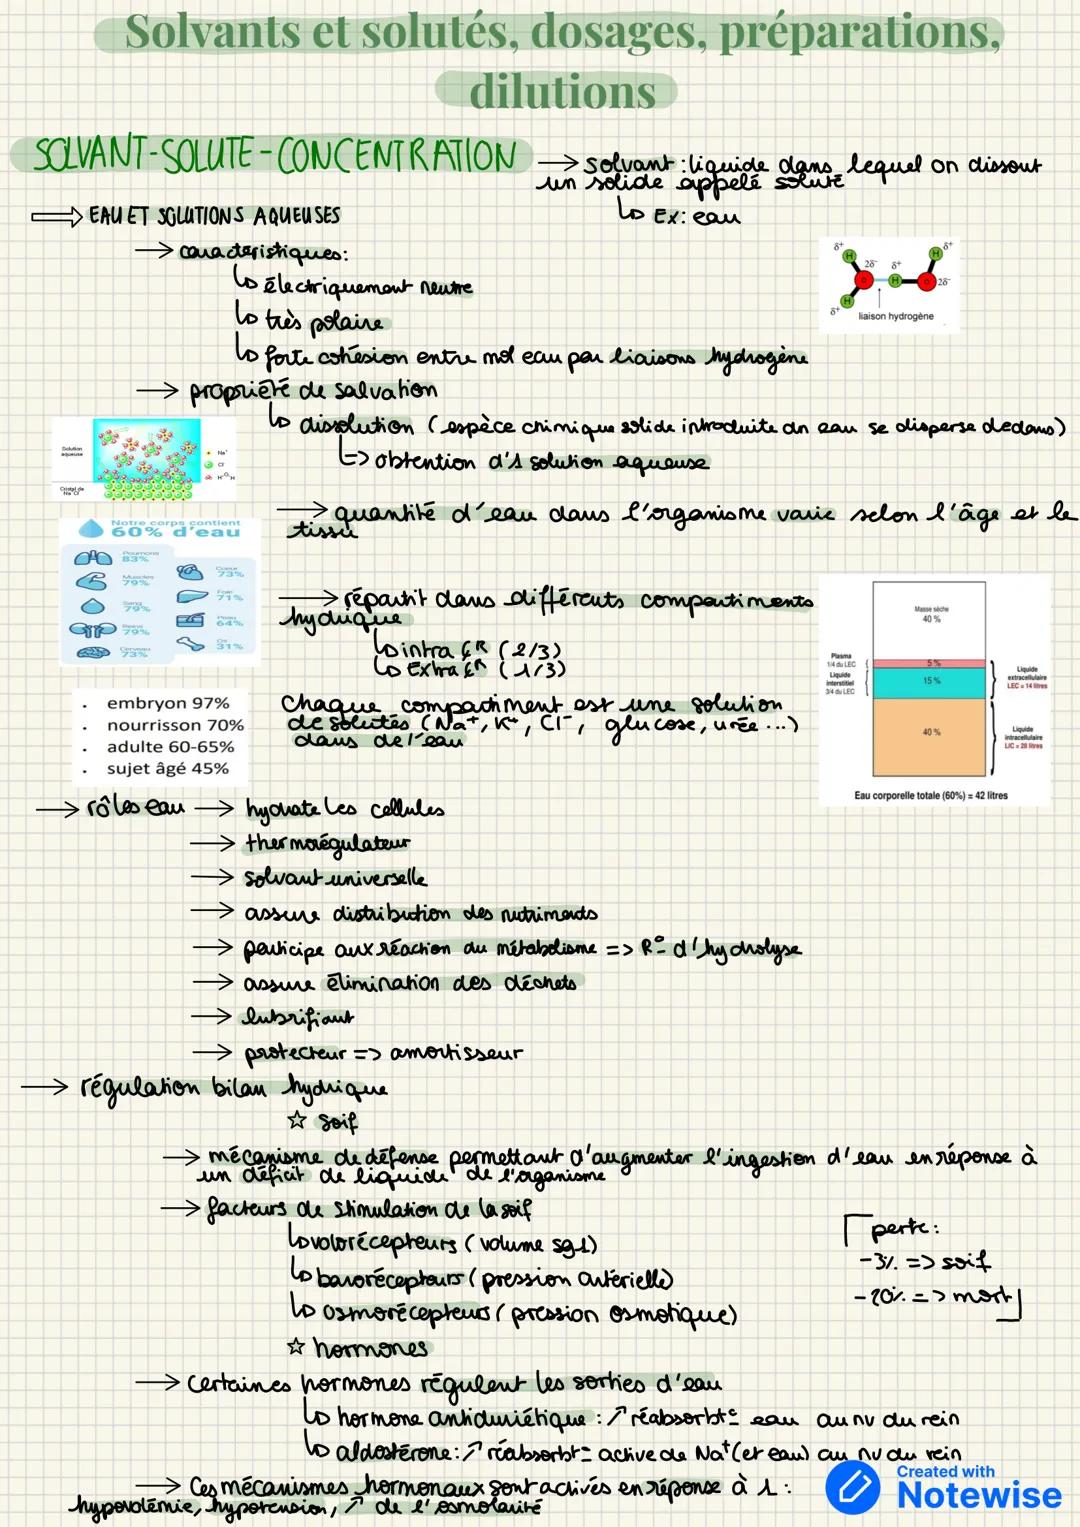 Solvants et solutés, dosages, préparations,
dilutions
SOLVANT-SOLUTE-CONCENTRATION
→ solvant : liquide dans lequel on dissout
un solide appelé soluté
↳ Ex: eau
⇒ EAU ET SOLUTIONS AQUEUSES
→ caractéristiques:
↳ électriquement neutre
↳ très polaire
↳ forte cohésion entre mol eau par liaisons hydrogène
δ+ H 2δ- δ+ H δ+
O H O 2δ-
δ+ H
liaison hydrogène
→ propriété de salvation
↳ dissolution (espèce chimique solide introduite dn eau se disperse dedans)
↳> obtention d'1 solution aqueuse
Solution
aqueuse
Na+
Cl-
H O H
Cristal de
Na Cl
→ quantité d'eau dans l'organisme varie selon l'âge et le
tissu
Notre corps contient
60% d'eau
Poumons
83%
Muscles
79%
Sang
79%
Reins
79%
Cerveau
73%
Coeur
73%
Foie
71%
Peau
64%
Os
31%
→ répartit dans différents compartiments
hydrique
↳ intra (2/3)
↳ Extra (1/3)
Chaque compartiment est une solution
de solutés (Na+, K+, Cl-, glucose, urée ...)
dans de l'eau
. embryon 97%
. nourrisson 70%
. adulte 60-65%
. sujet âgé 45%
Masse sèche
40 %
Plasma
1/4 du LEC
5 %
Liquide
interstitiel
3/4 du LEC
15 %
Liquide
extracellulaire
LEC = 14 litres
40 %
Liquide
intracellulaire
LIC = 28 litres
Eau corporelle totale (60%) = 42 litres
→ rôles eau → hydrate les cellules
→ thermorégulateur
→ solvant universelle
→ assure distribution des nutriments
→ participe aux réaction du métabolisme => R° d'hydrolyse
→ assure élimination des déchets
→ lubrifiant
→ protecteur => amortisseur
→ régulation bilan hydrique
☆ soif
→ mécanisme de défense permettant d'augmenter l'ingestion d'eau en réponse à
un déficit de liquide de l'organisme
→ facteurs de stimulation de la soif
↳ volorécepteurs (volume sg1)
↳ barorécepteurs (pression artérielle)
↳ osmorécepteurs (pression osmotique)
perte:
-3% => soif
-20% => mort
☆ hormones
→ Certaines hormones régulent les sorties d'eau
↳ hormone antidiuriétique : ↗ réabsorbt° eau au nv du rein
↳ aldostérone: ↗ réabsorbt° active de Na+ (et eau) au nv du rein
→ Ces mécanismes hormonaux sont activés en réponse à 1 :
hypovolémie, hypotension, ↗ de l'osmolarité
Created with
Notewise